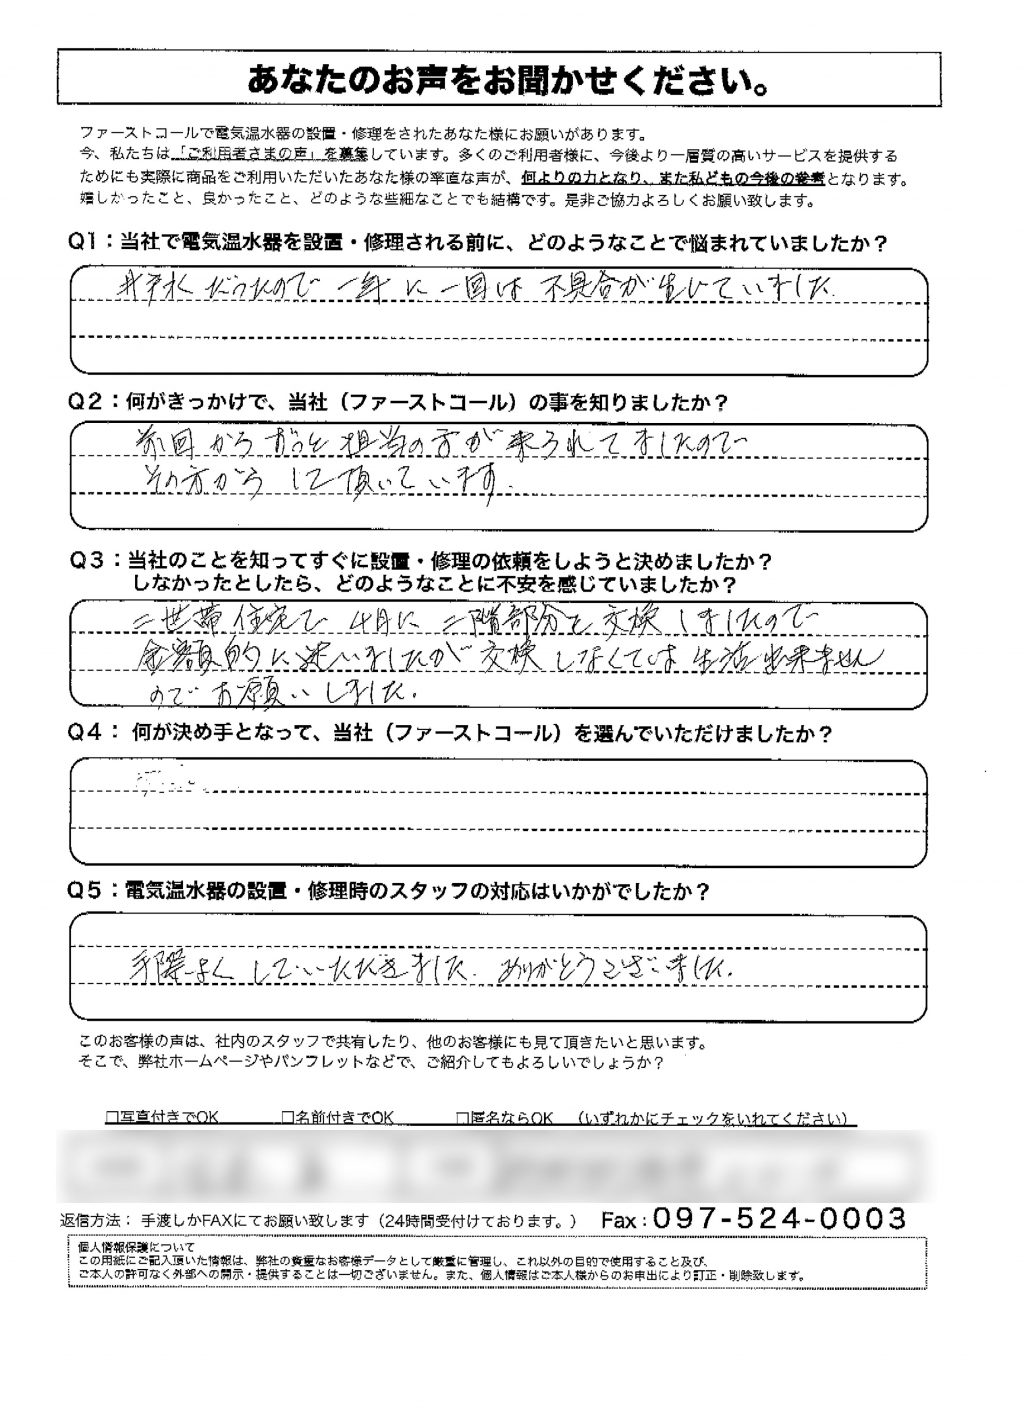 あなたのお声をお聞かせください。
ファーストコールで電気温水器の設置・修理をされたあなた様にお願いがあります。
今、私たちは「ご利用者さまの声」を募集しています。多くのご利用者様に、今後より一層質の高いサービスを提供する
ためにも実際に商品をご利用いただいたあなた様の率直な声が、何よりの力となり、また私どもの今後の発奮となります。
嬉しかったこと、良かったこと、どのような些細なことでも結構です。是非ご協力よろしくお願い致します。
Q1：当社で電気温水器を設置・修理される前に、どのようなことで悩まれていましたか？
井戸水だったので一年に一回は不具合が生じていました
Q2：何がきっかけで、当社（ファーストコール）の事を知りましたか？
前回からずっと担当の方が来られてましたので
その方からして頂いています.
Q3：当社のことを知ってすぐに設置・修理の依頼をしようと決めましたか？
しなかったとしたら、どのようなことに不安を感じていましたか？
二世帯住宅で4月に二階部分を交換しましたので
金額的に迷いましたが交換しなくては生活出来ません
のでお願いしました.
Q4： 何が決め手となって、当社（ファーストコール）を選んでいただけましたか？
Q5：電気温水器の設置・修理時のスタッフの対応はいかがでしたか？
手際よくしていただきました. ありがとうございました.
このお客様の声は、社内のスタッフで共有したり、他のお客様にも見て頂きたいと思います。
そこで、弊社ホームページやパンフレットなどで、ご紹介してもよろしいでしょうか？
□写真付きでOK □名前付きでOK □匿名ならOK （いずれかにチェックをいれてください）
返信方法： 手渡しかFAXにてお願い致します（24時間受付けております。） Fax：097-524-0003
個人情報保護について
この用紙にご記入頂いた情報は、弊社の貴重なお客様データとして厳重に管理し、これ以外の目的で使用すること及び、
ご本人の許可なく外部への開示・提供することは一切ございません。また、個人情報はご本人様からのお申出により訂正・削除致します。